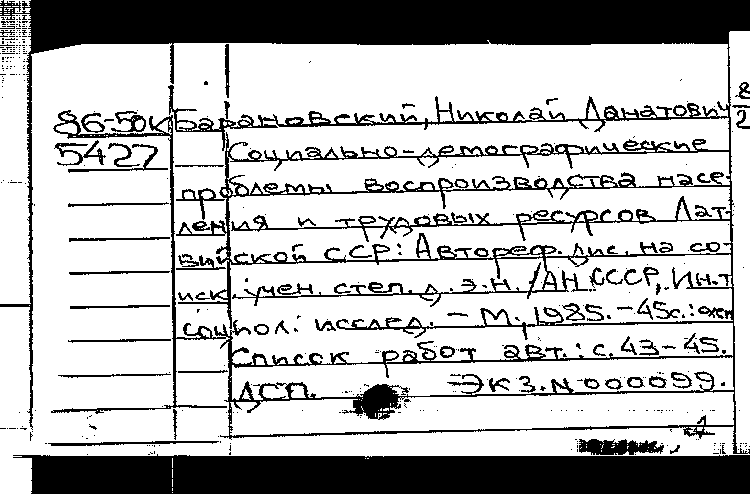 86-50к Барановский, Николай Данатович 8/2
5427 Социально-демографические
проблемы воспроизводства насе-
ления и трудовых ресурсов Лат-
вийской ССР: Автореф. дис. на со-
иск. учен. степ. д. э. н. /АН СССР, Ин-т
социол. исслед. - М., 1985. - 45с.:
Список работ авт.: с. 43-45.
ДСП. Экз. N 000099.